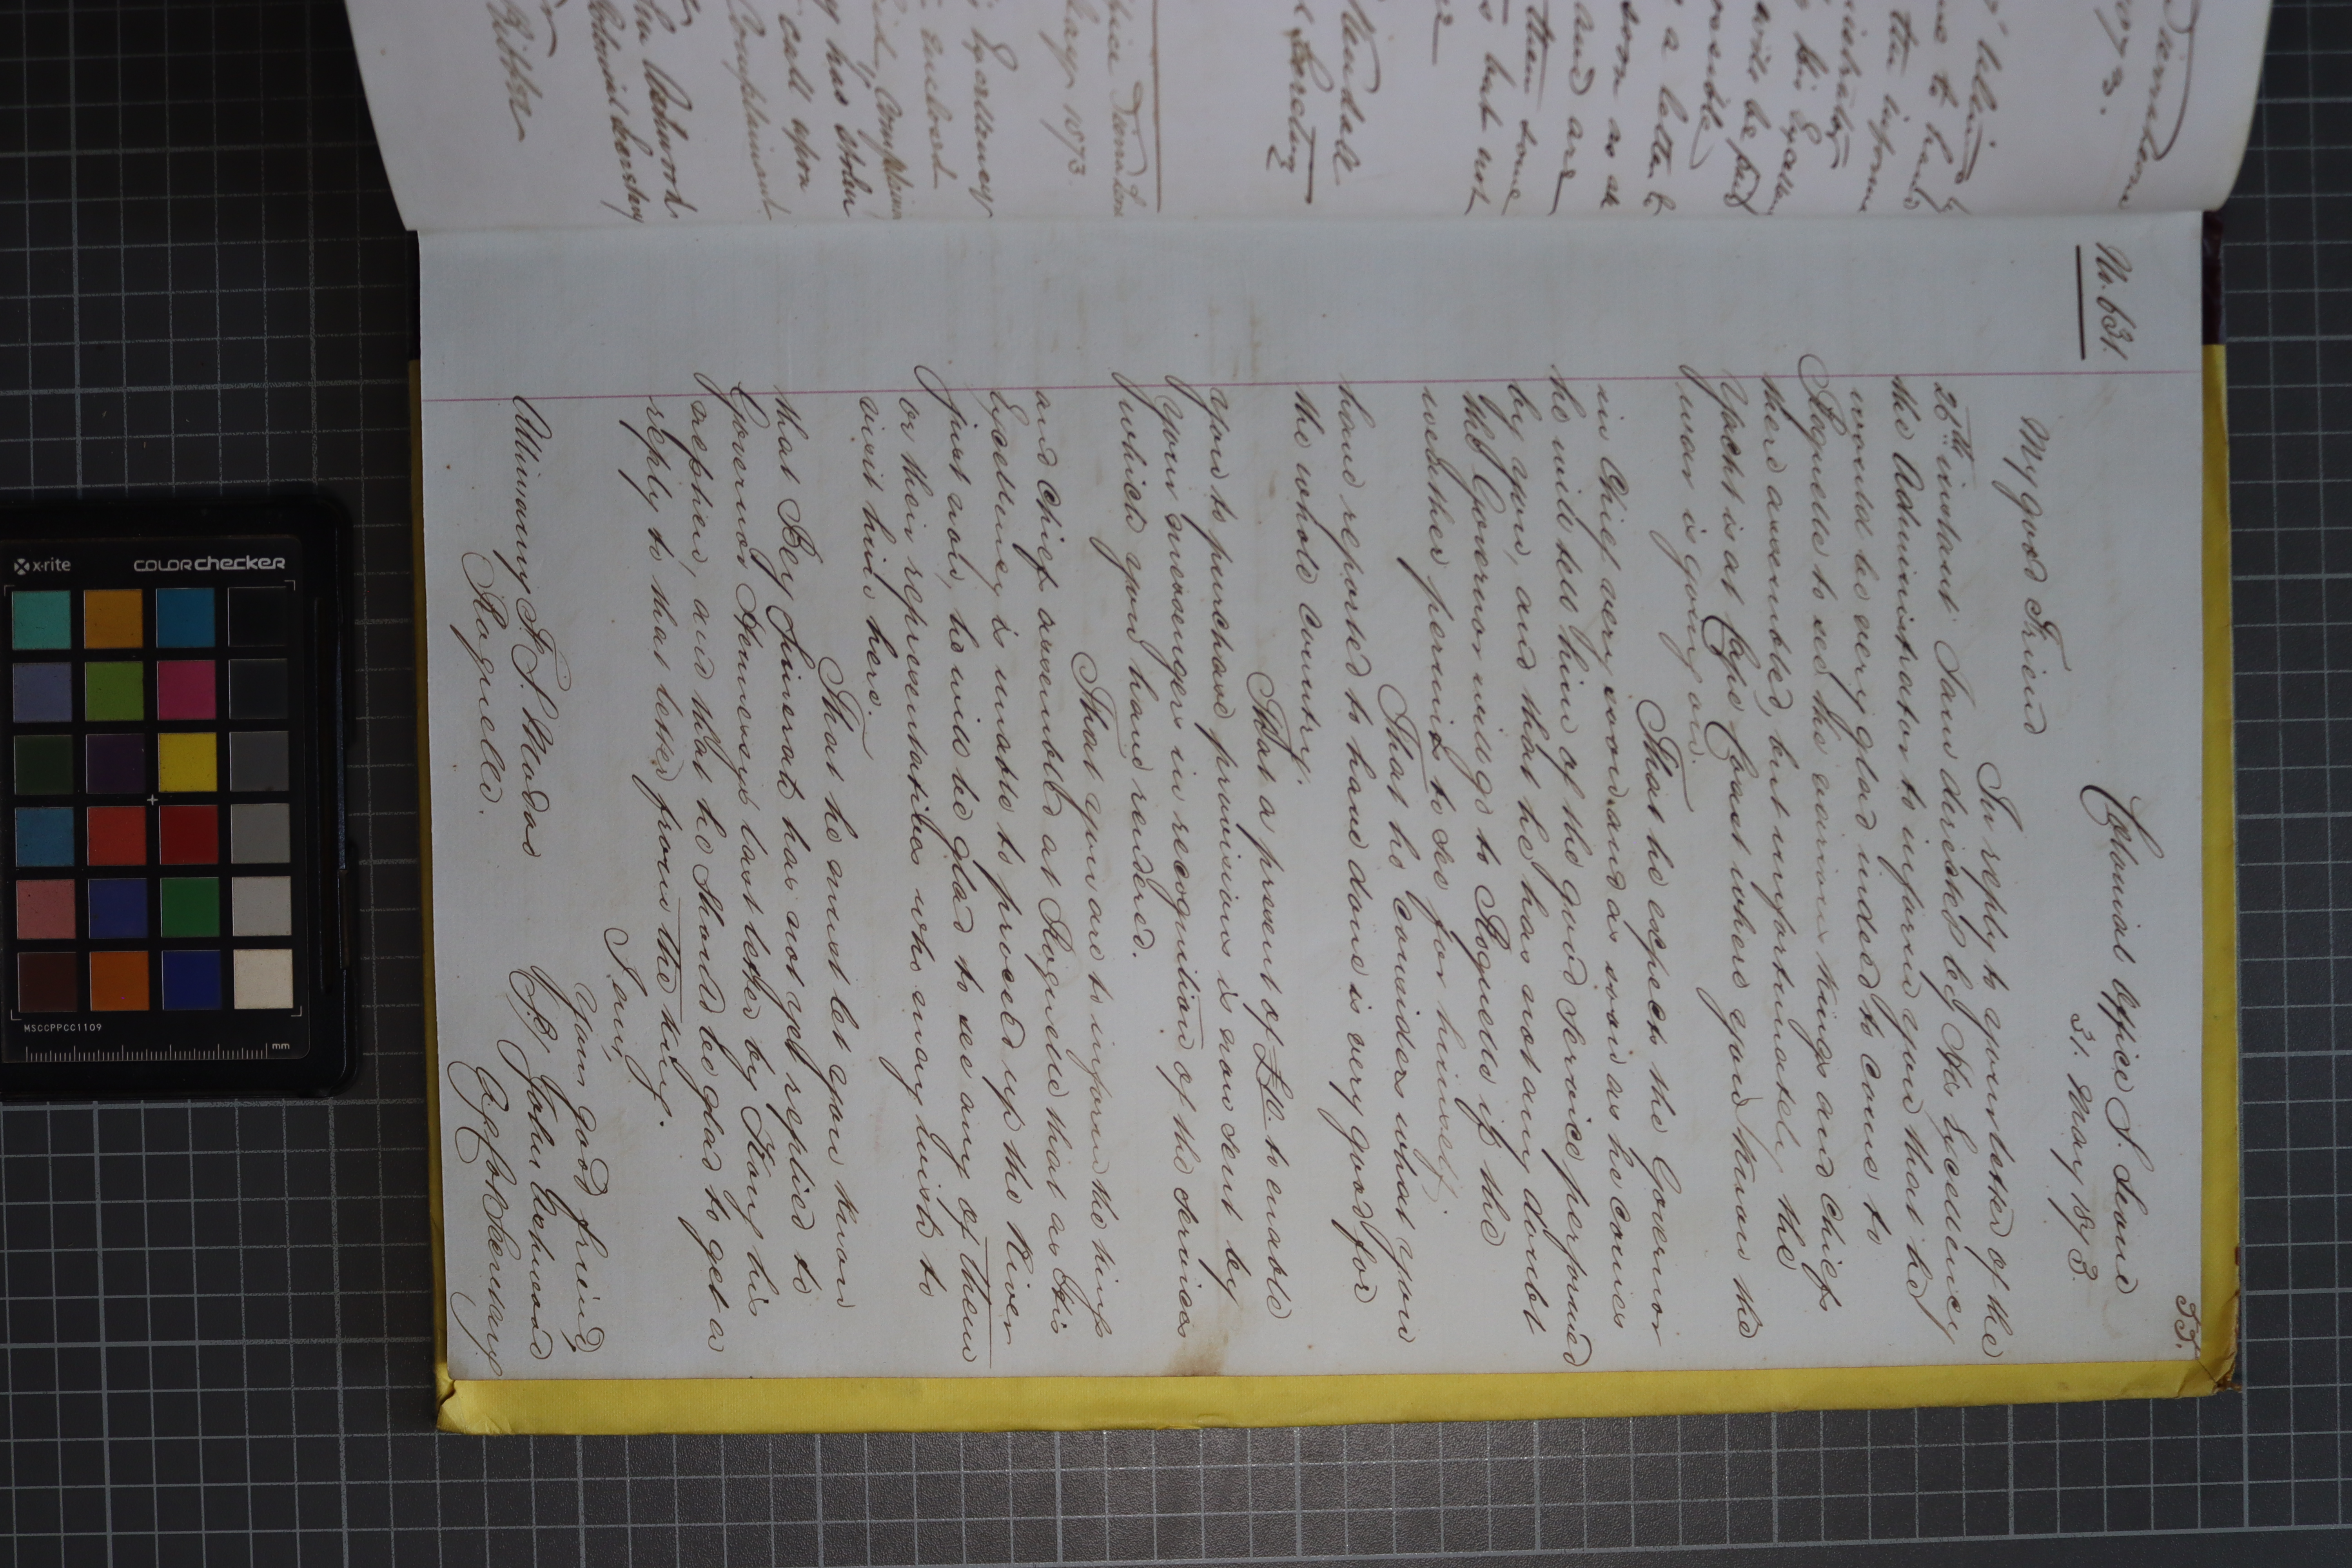 53.
No. 631.
Colonial Office S. Leone
31. May 1873.
My good Friend
In reply to your letter of the
26th instant I am directed by His Excellency
the Administrator to inform you that he
would be very glad indeed to come to
Roquelle to see the various kings and chiefs
there assembled, but unfortunately the
Yacht is at Cape Coast where you know the
war is going on.
That he expects the Governor
in Chief very soon and as soon as he comes
he will tell him of the good service performed
by you, and that he has not any doubt
the Governor will go to Roquelle if the
weather permits to see for himself.
That he considers what you
have reported to have done is very good for
the whole Country.
That a present of £10. to enable
you to purchase provisions is now sent by
your messengers in recognition of the services
which you have rendered.
That you are to inform the kings
and chiefs assembled at Roquelle that as His
Excellency is unable to proceed up the River
just now, he will be glad to see any of them
or their representatives who may wish to
visit him here.
That he must let you know
that Bey Simerah has not yet replied to
Governor Hennessy's last letter by Kong his
nephew, and that he should be glad to get a
reply to that letter from the king.
I am,
Your good friend,
Alimamy F. S. Modoo
Roquelle.
(S.) John Welwood
Ag. Col. Secretary
1873.
Kendall
Secretary
May 1873.
Excellency
enclosed
has stolen
call upon
Complainant
Colonial Secretary